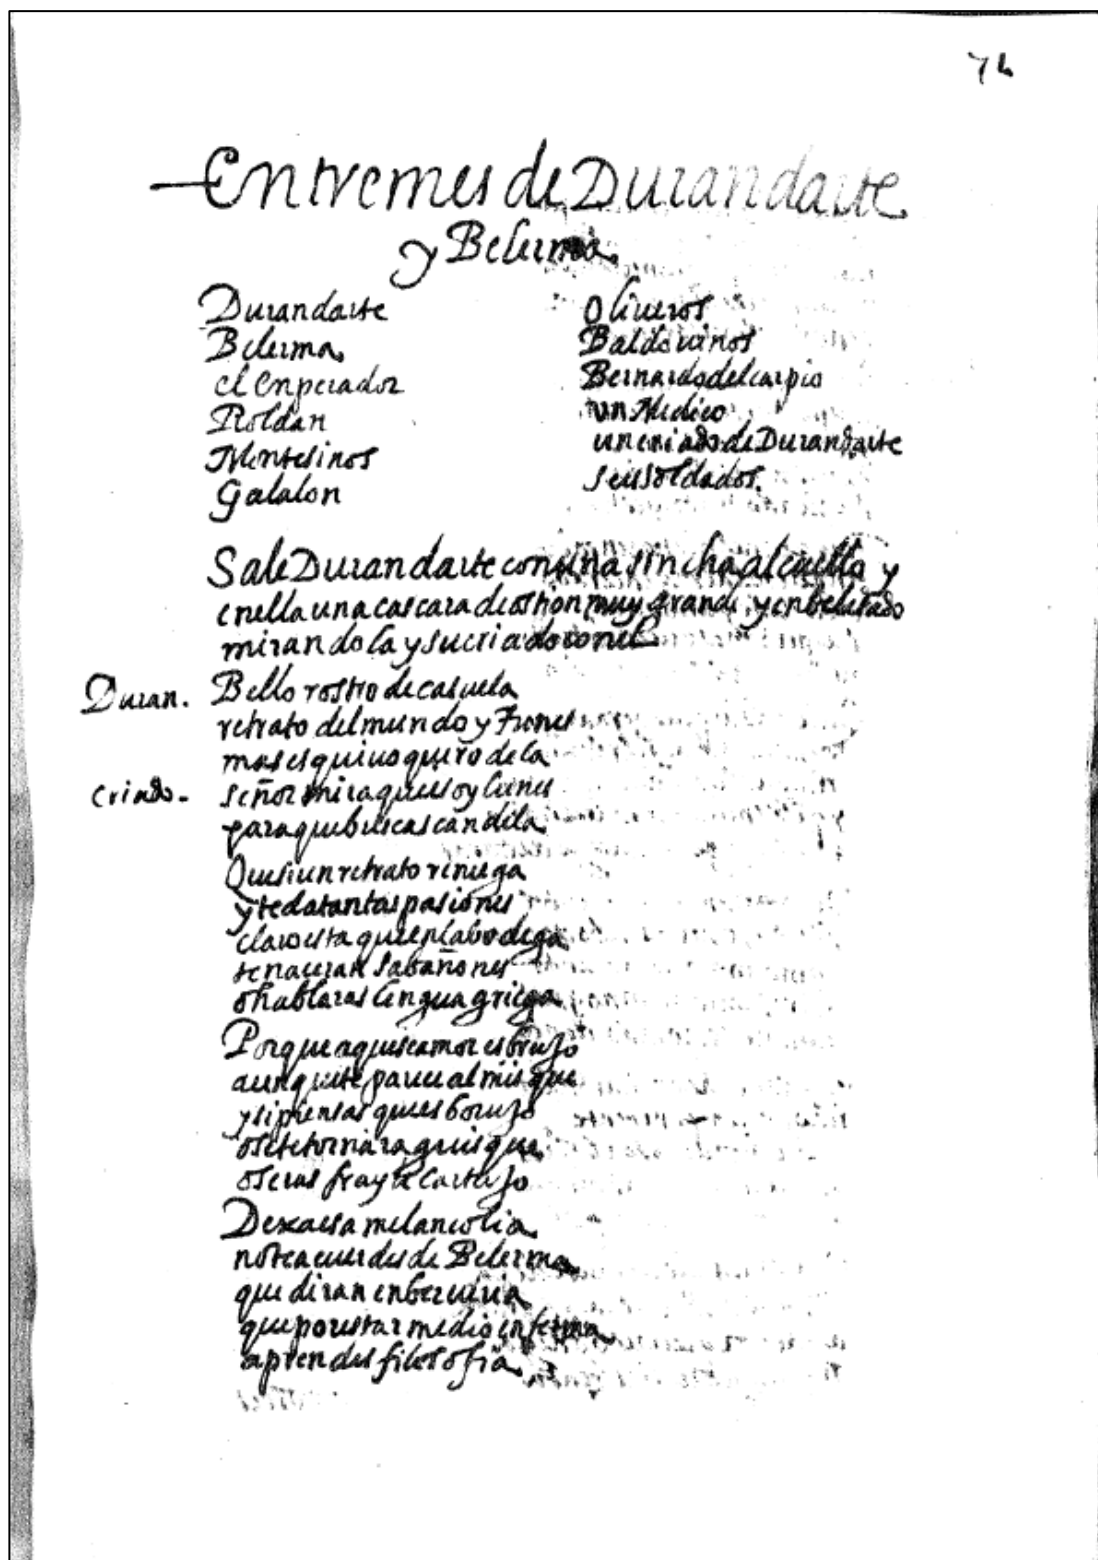 74
Entremes de Durandarte
y Belerma
Durandarte
Belerma
el enperador
Roldan
Montesinos
Galalon
Oliueros
Baldouinos
Bernardo del carpio
un Medico
un criado de Durandarte
seis soldados.
Sale Durandarte con una sincha al cuello y
en ella una cascara de ostion muy grande y enbelesado
mirandola y su criado con el
Duran. Bello rostro de casuela
retrato del mundo y
mas esquiuo que
criado- señor mira que es oy lunes
para que buscas candela
Que si un retrato reniega
y te da tantas pasiones
claro esta que en la bodega
te naceran sabañones
o hablaras lengua griega
Porque aquese amor es brujo
aunque te parece almisque
y si piensas que es
o se te tornara
o seras frayle cartujo
Dexa esa melancolia
no te acuerdes de Belerma
que diran en berueria
que por estar medio enferma
aprendes filosofia